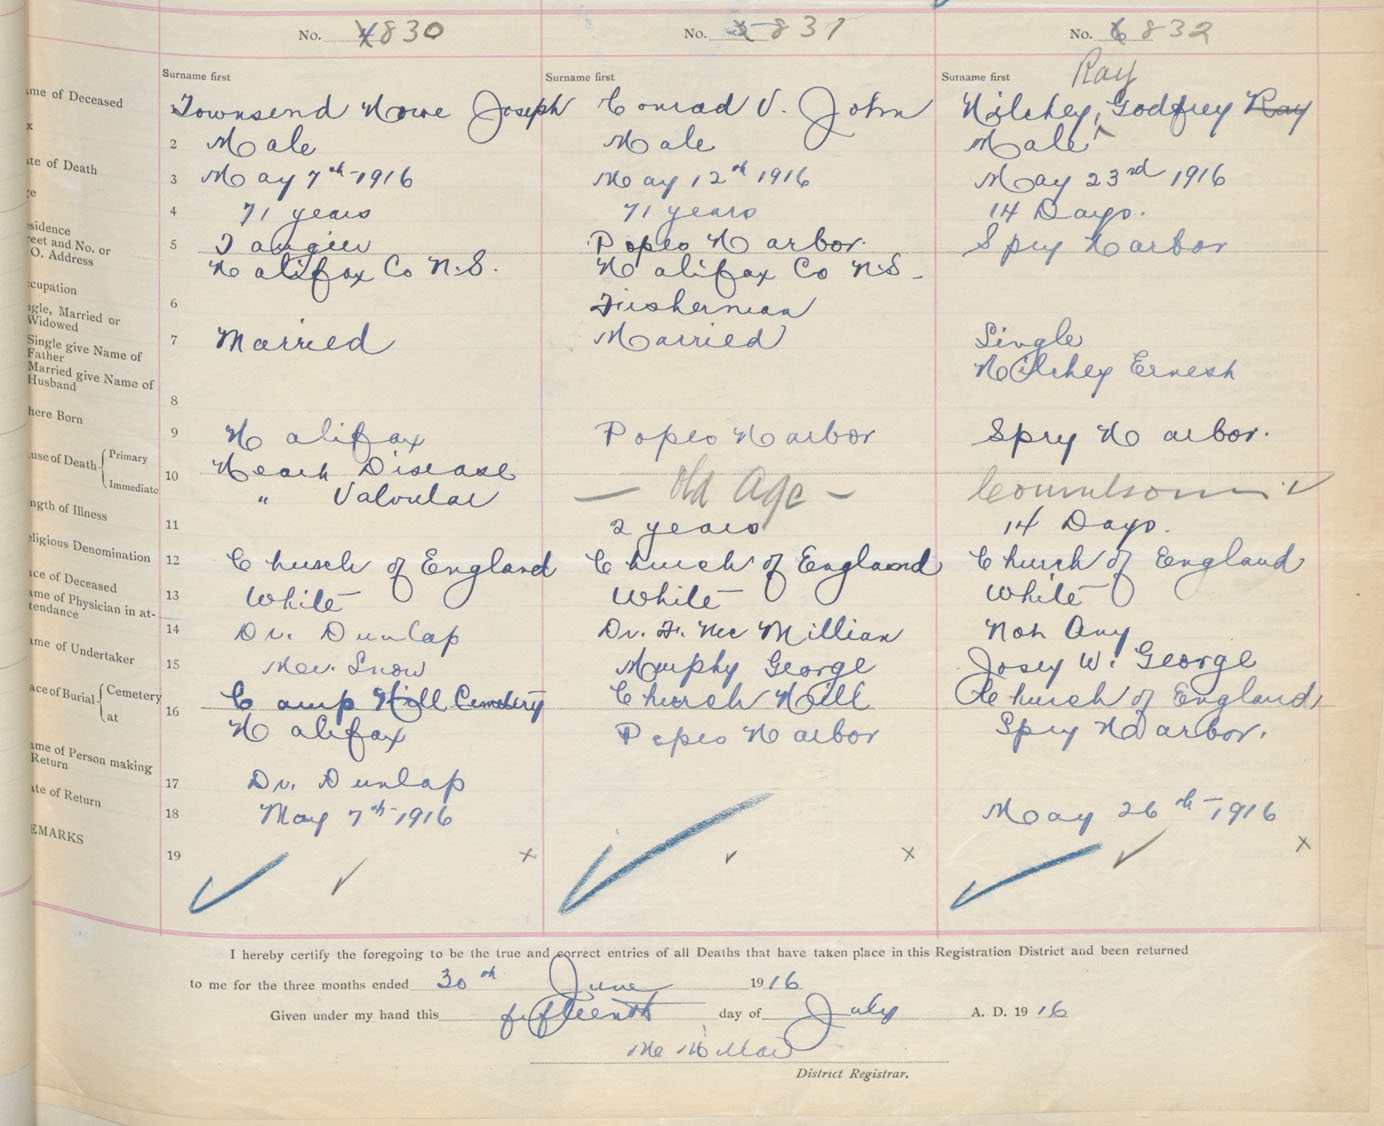 No. 4 830
No. 5 831
No. 6 832
Surname first
Surname first
Surname first
Ray
me of Deceased
Townsend Howe Joseph
Conrad V. John
Hilchey, Godfrey Ray
x
2 Male
Male
Male
te of Death
3 May 7th 1916
May 12th 1916
May 23rd 1916
e
4 71 years
71 years
14 Days.
sidence
eet and No. or
O. Address
5 Tangier
Popes Harbor.
Spry Harbor
Halifax Co N.S.
Halifax Co N.S.
ccupation
6
Fisherman
ngle, Married or
Widowed
7 Married
Married
Single
Single give Name of
Father
Hilchey Ernest
Married give Name of
Husband
8
here Born
9 Halifax
Popes Harbor
Spry Harbor.
use of Death { Primary
Immediate
10 Heart Disease
" Valvular
— Old Age —
Convulsions
ngth of Illness
11
2 years
14 Days.
eligious Denomination
12 Church of England
Church of England
Church of England
ace of Deceased
13 White
White
White
ame of Physician in at-
tendance
14 Dr. Dunlap
Dr. F. Mc Millian
Not Any
ame of Undertaker
15 Snow
Murphy George
Josey W. George
ace of Burial { Cemetery
at
16 Camp Hill Cemetery
Church Hill
Church of England
Halifax
Popes Harbor
Spry Harbor.
ame of Person making
Return
17 Dr. Dunlap
ate of Return
18 May 7th 1916
May 26th 1916
EMARKS
19
x
x
x
I hereby certify the foregoing to be the true and correct entries of all Deaths that have taken place in this Registration District and been returned
to me for the three months ended 30th June 1916
Given under my hand this fifteenth day of July A. D. 1916
District Registrar.